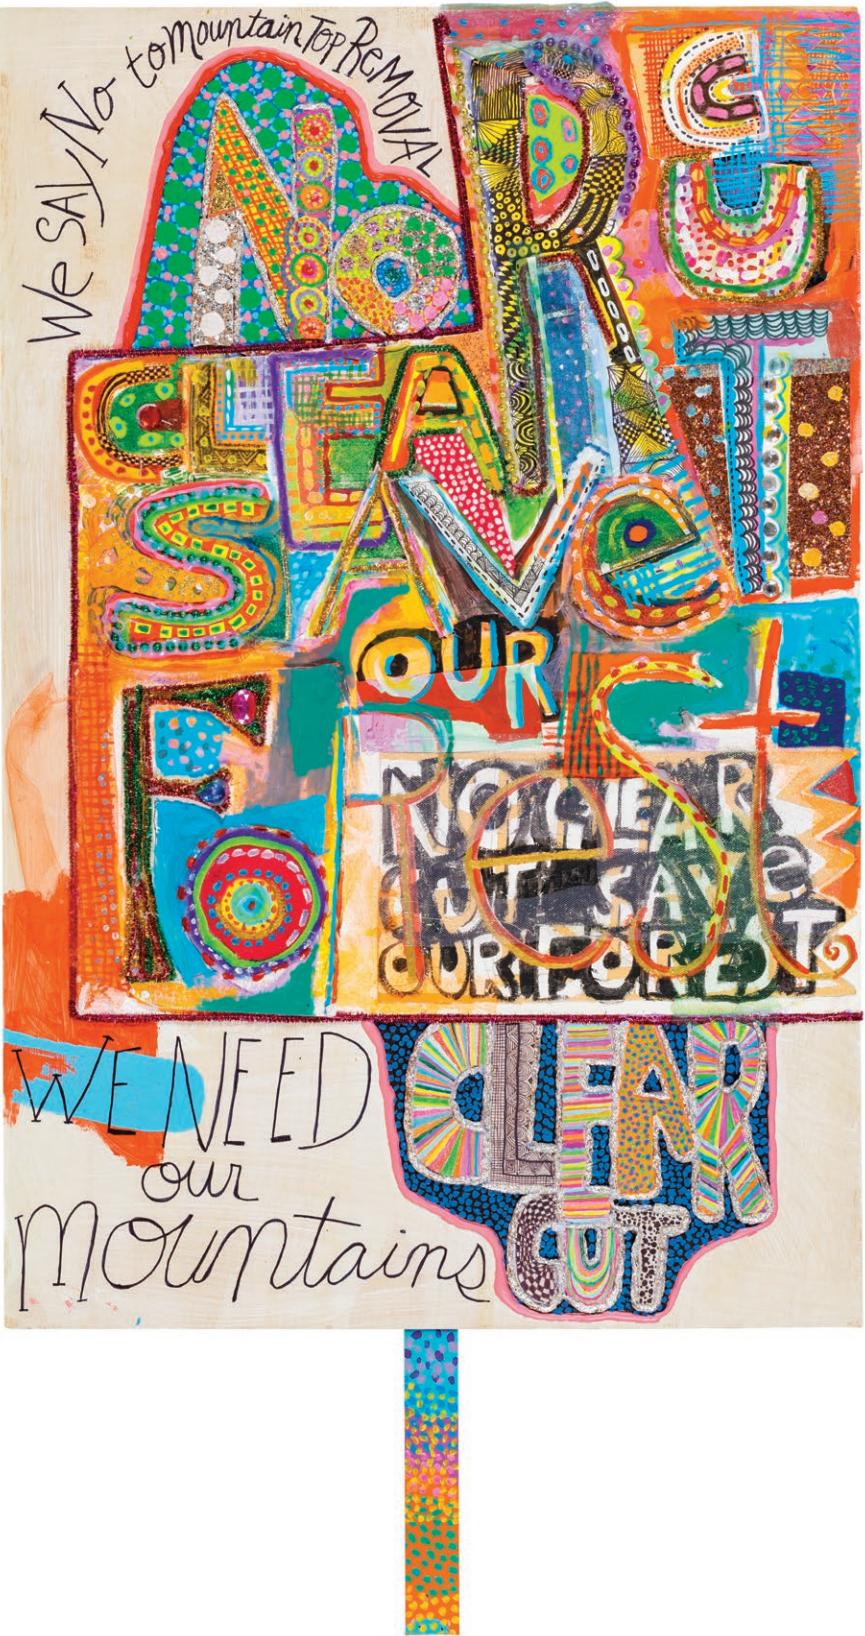 We SAY No to Mountain Top ReMOVAL
No
CLEAR CUT
SAVe
OUR
ForeSt
NO CLEAR
CUT SAVe
OUR FOREST
WE NEED
our
Mountains
CLEAR
CUT